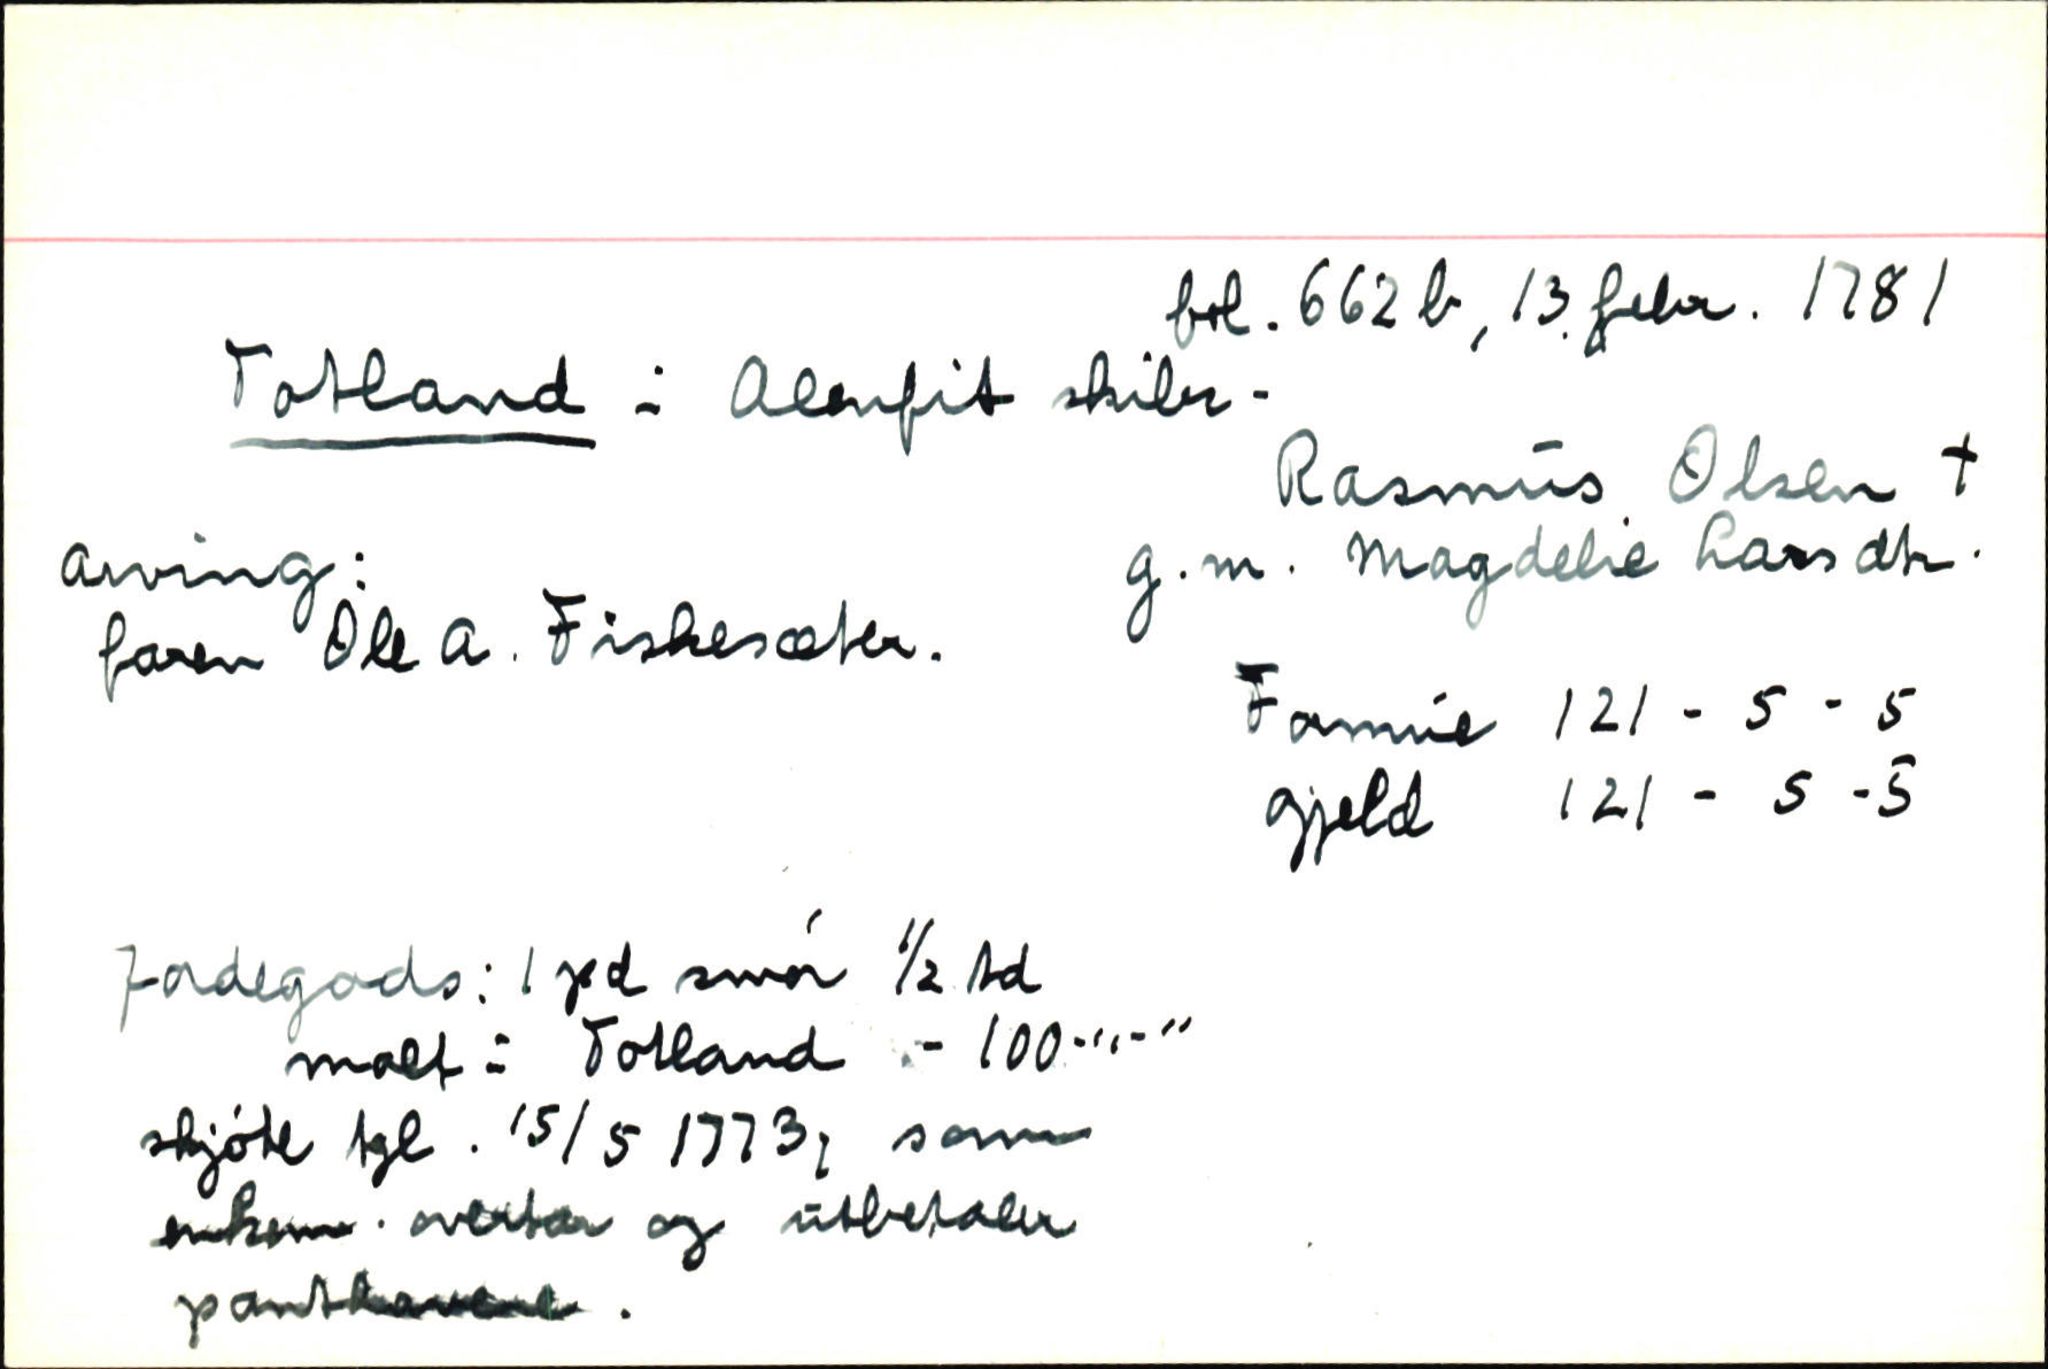 fol. 662 b, 13. febr. 1781
Totland i Alenfit skibr-
Rasmus Olsen †
g.m. Magdelie Larsdtr.
arving:
faren Ole A. Fiskesæter.
Formue 121 - 5 - 5
gjeld 121 - 5 - 5
Jordegods: 1 pd smør 1/2 td
malt i Totland - 100-"-"
skjøte tgl. 15/5 1773, som
enken overtar og utbetaler
panthavere.